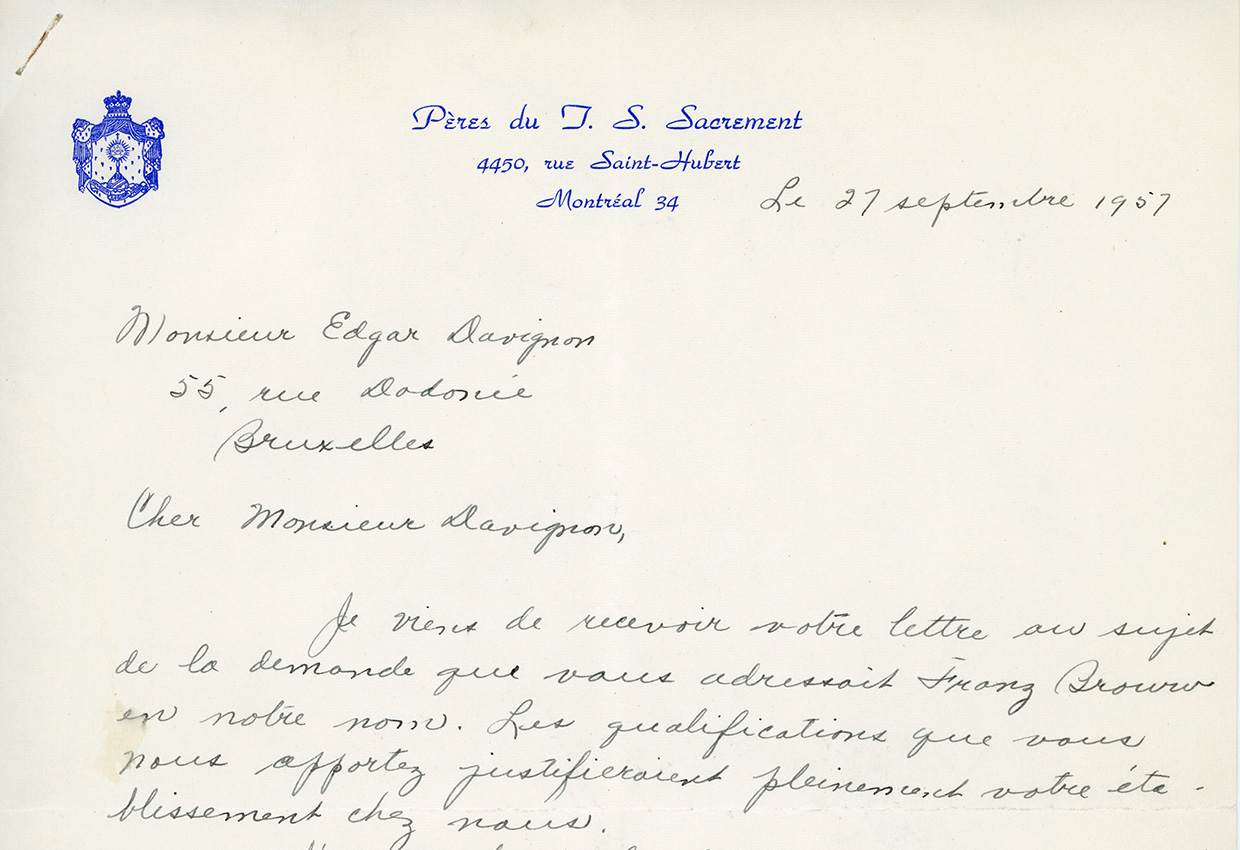 Pères du T. S. Sacrement
4450, rue Saint-Hubert
Montréal 34
Le 27 septembre 1957
Monsieur Edgar Davignon
55, rue Dodonée
Bruxelles
Cher Monsieur Davignon,
Je viens de recevoir votre lettre au sujet
de la demande que vous adressait Franz
en notre nom. Les qualifications que vous
nous apportez justifieraient pleinement votre éta-
blissement chez nous.